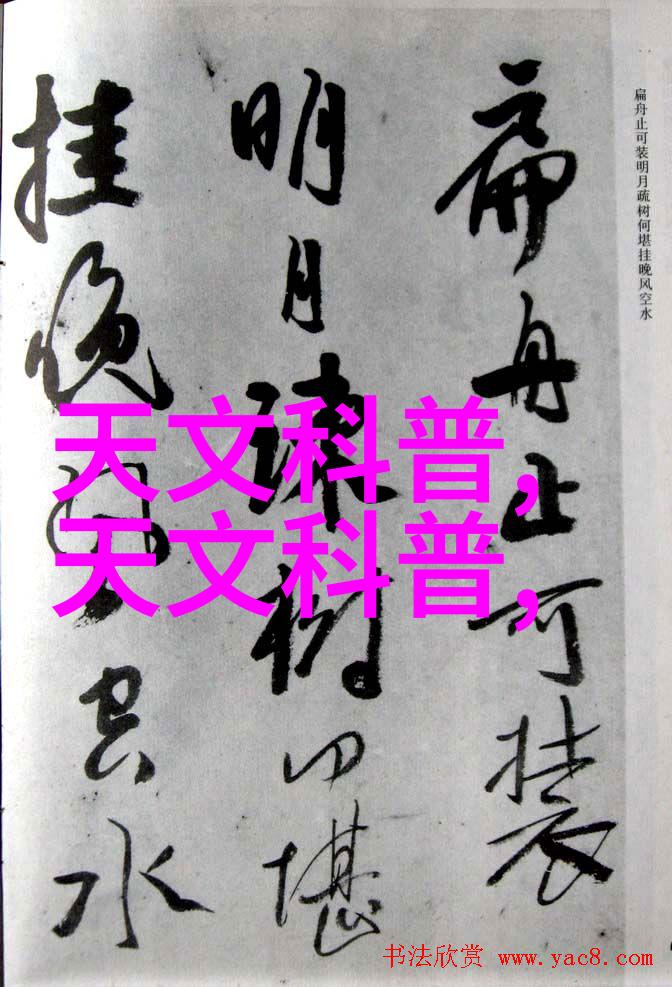 扁舟止可装明月疏树何堪挂晚风空水
扁舟止可装
明月疏树何堪
挂晚风空水
天文科普,
天文科普,
书法欣赏 www.yac8.com